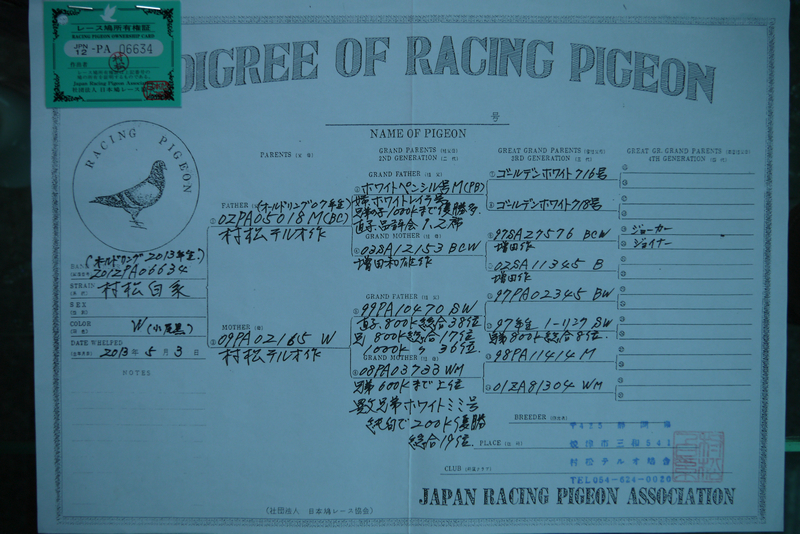 レース鳩所有権証
RACING PIGEON OWNERSHIP CARD
JPN 12 -PA 06634
Japan Racing Pigeon Association
社団法人 日本鳩レース
DIGREE OF RACING PIGEON
号
NAME OF PIGEON
RACING PIGEON
PARENTS
GRAND PARENTS
2ND GENERATION
GREAT GRAND PARENTS
3RD GENERATION
GREAT GR. GRAND PARENTS
4TH GENERATION
FATHER
(オールドリング07年生)
02PA05018M(BC)
村松テルオ作
MOTHER
09PA02165 W
村松テルオ作
GRAND FATHER
ホワイトペンシル号M(PB)
姉ホワイトレイラ号
兄弟の子1000Kまで優勝多
直子品評会1、2席
GRAND MOTHER
03SA12153 BCW
増田和雄作
GRAND FATHER
99PA10470 SW
直子、800K総合38位
別 800K総合17位
1000K 〃 36位
GRAND MOTHER
08PA03733 WM
兄弟600Kまで上位
異父兄弟ホワイトミミ号
純白で200K優勝
総合19位
ゴールデンホワイト716号
ゴールデンホワイト718号
97SA27576 BCW
増田作
02SA11345 B
増田作
97PA02345 BW
97年生 1-1129 SW
兄弟800K総合8位
98PA11414 M
01ZA81304 WM
ジョーカー
ジョイナー
(オールドリング2013年生)
BAND
2012PA06634
STRAIN
村松白系
SEX
COLOR
W(小灰黒)
DATE WHELPED
2013年 5月 3日
NOTES
BREEDER
PLACE
CLUB
〒425 静岡県
焼津市三和841
村松テルオ鳩舎
TEL 054-624-0020
JAPAN RACING PIGEON ASSOCIATION
(社団法人 日本鳩レース協会)